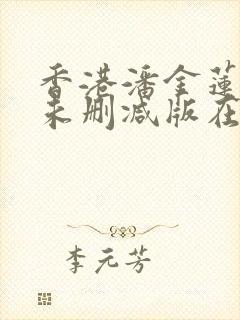 香港潘金莲
未删减版在
李元芳